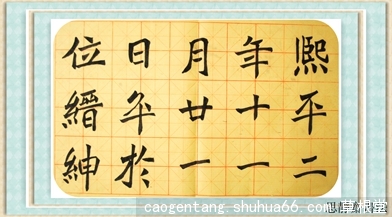 熙平二
年十一
月廿一
日卒於
位縉紳
caogentang.shuhua66.com
草根堂